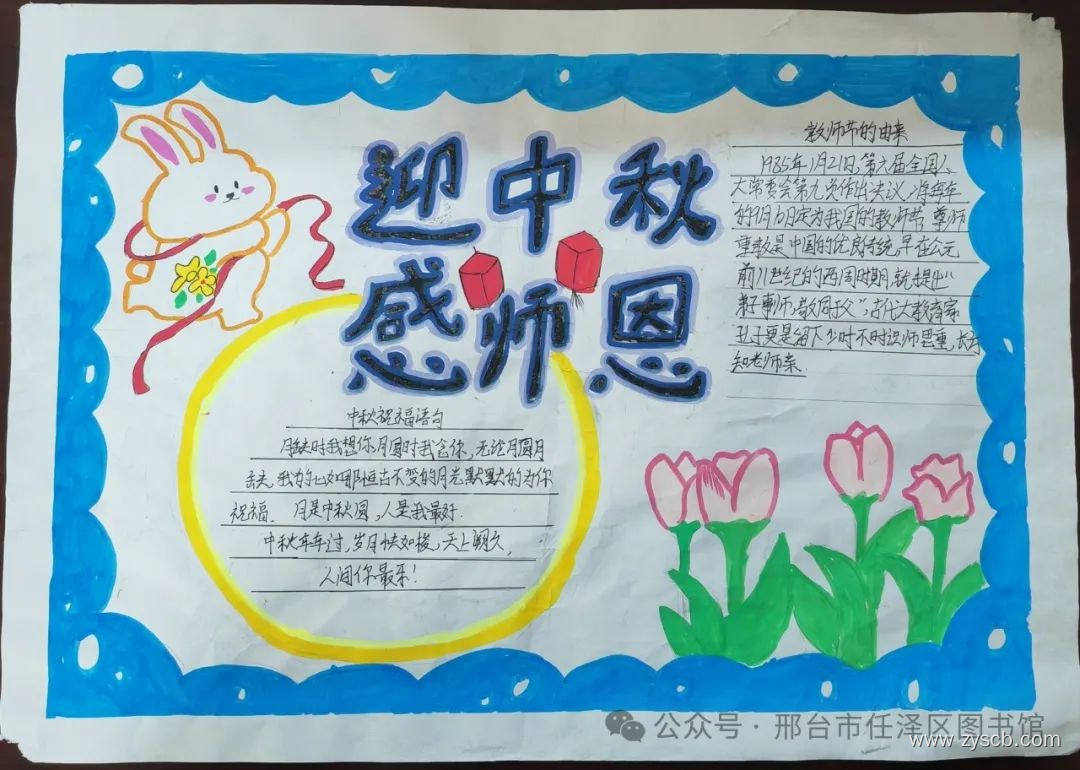 迎中秋
感师恩
教师节的由来
1985年1月21日,第六届全国人
大常委会第九次作出决议,将每年
的9月10日定为我国的教师节。尊师
重教是中国的优良传统,早在公元
前11世纪的西周时期,就提出“
弟子事师,敬同于父”,古代大教育家
孔子更是留下 少时不时识师恩重,长
知老师亲.
中秋祝福语句
月缺时我想你,月圆时我念你,无论月圆月
缺,我的心如那恒古不变的月光默默的为你
祝福. 月是中秋圆,人是我最好.
中秋年年过,岁月快如梭,天上
人间你最乐!
公众号·邢台市任泽区图书馆
www.zyscb.com